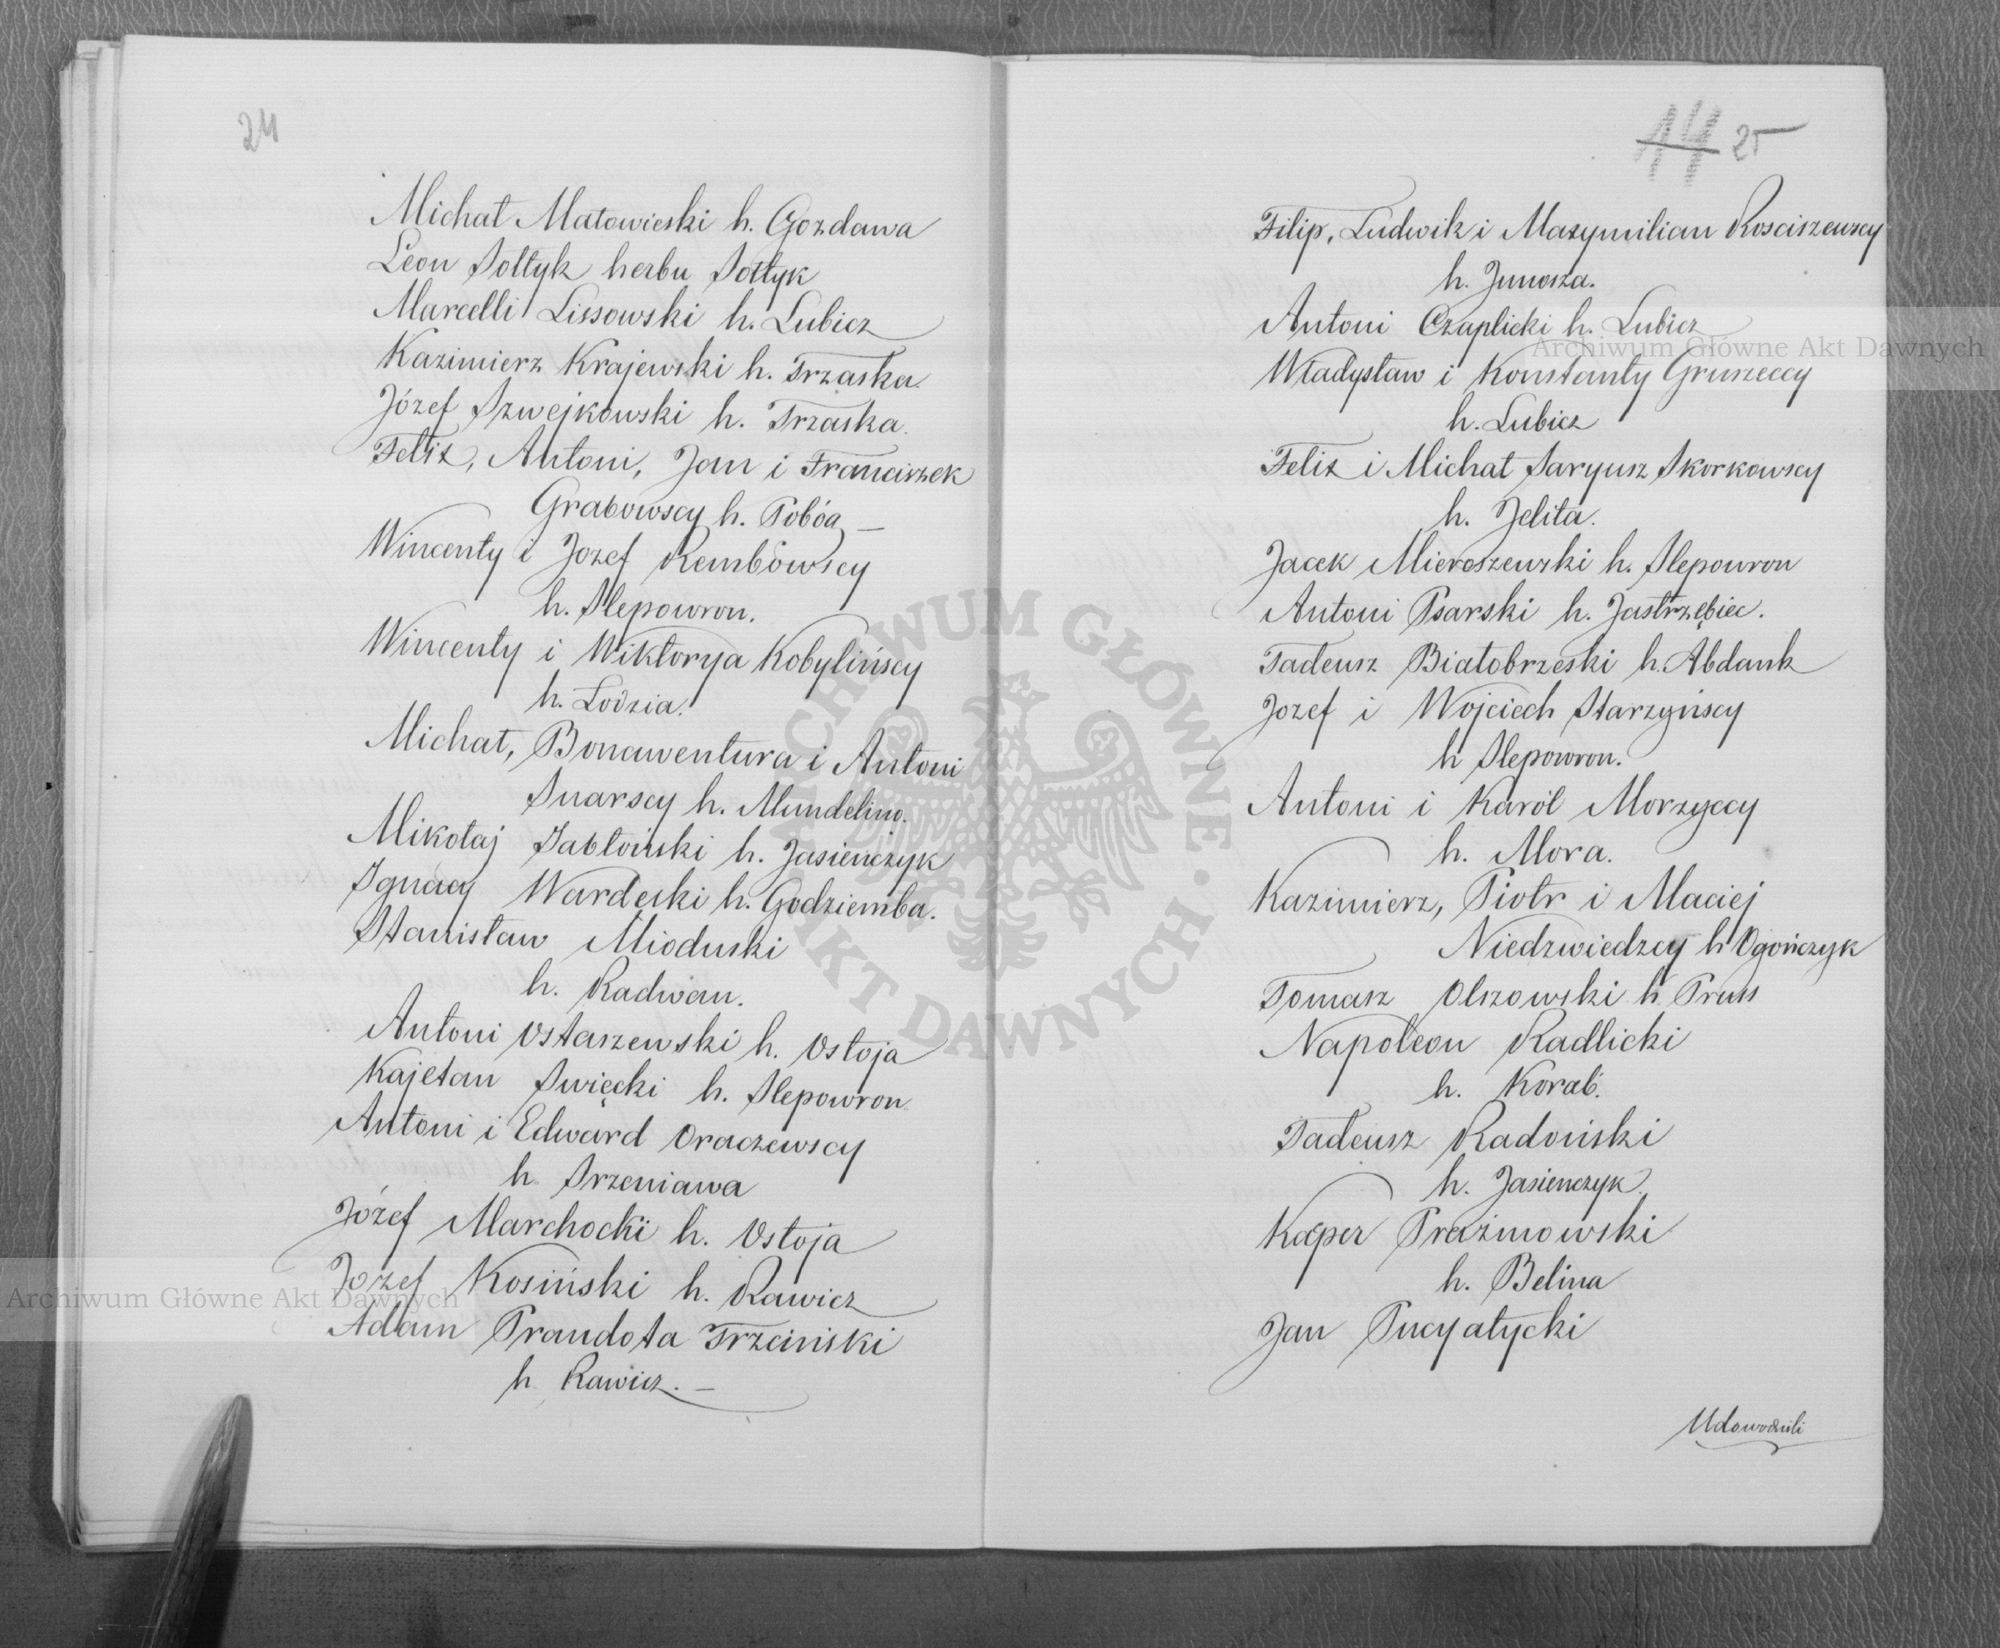 24
Michał Małowieski h. Gozdawa
Leon Sołtyk herbu Sołtyk
Marcelli Lissowski h. Lubicz
Kazimierz Krajewski h. Trzaska.
Józef Szwejkowski h. Trzaska.
Felix, Antoni, Jan i Franciszek
Grabowscy h. Pobóg –
Wincenty i Jozef Rembowscy
h. Slepowron.
Wincenty i Wiktorya Kobylińscy
h. Łodzia.
Michał, Bonawentura i Antoni
Suarscy h. Mundelino.
Mikołaj Jabłoński h. Jasieńczyk
Ignacy Wardeski h. Godziemba.
Stanisław Mioduski
h. Radwan.
Antoni Ostaszewski h. Ostoja
Kajetan Swięcki h. Slepowron.
Antoni i Edward Oraczewscy
h. Srzeniawa
Józef Marchocki h. Ostoja
Jozef Kosiński h. Rawicz
Adam Prandota Trzciński
h. Rawicz. –
14 25
Filip, Ludwik i Maxymilian Rosciszewscy
h. Junosza.
Antoni Czaplicki h. Lubicz
Władysław i Konstanty Gruszeccy
h. Lubicz
Felix i Michał Saryusz Skorkowscy
h. Jelita.
Jacek Mieroszewski h. Slepowron
Antoni Psarski h. Jastrzębiec.
Tadeusz Białobrzeski h. Abdank
Jozef i Wojciech Starzyńscy
h Slepowron.
Antoni i Karól Morzyccy
h. Mora.
Kazimierz, Piotr i Maciej
Niedzwiedzcy h Ogończyk
Tomasz Olszowski h. Pruss
Napoleon Radlicki
h. Korab.
Tadeusz Radoński
h. Jasieńczyk.
Kacper Prażmowski
h. Belina
Jan Pucyatycki
Udowodnili
Archiwum Główne Akt Dawnych
Archiwum Główne Akt Dawnych
ARCHIWUM GŁÓWNE AKT DAWNYCH